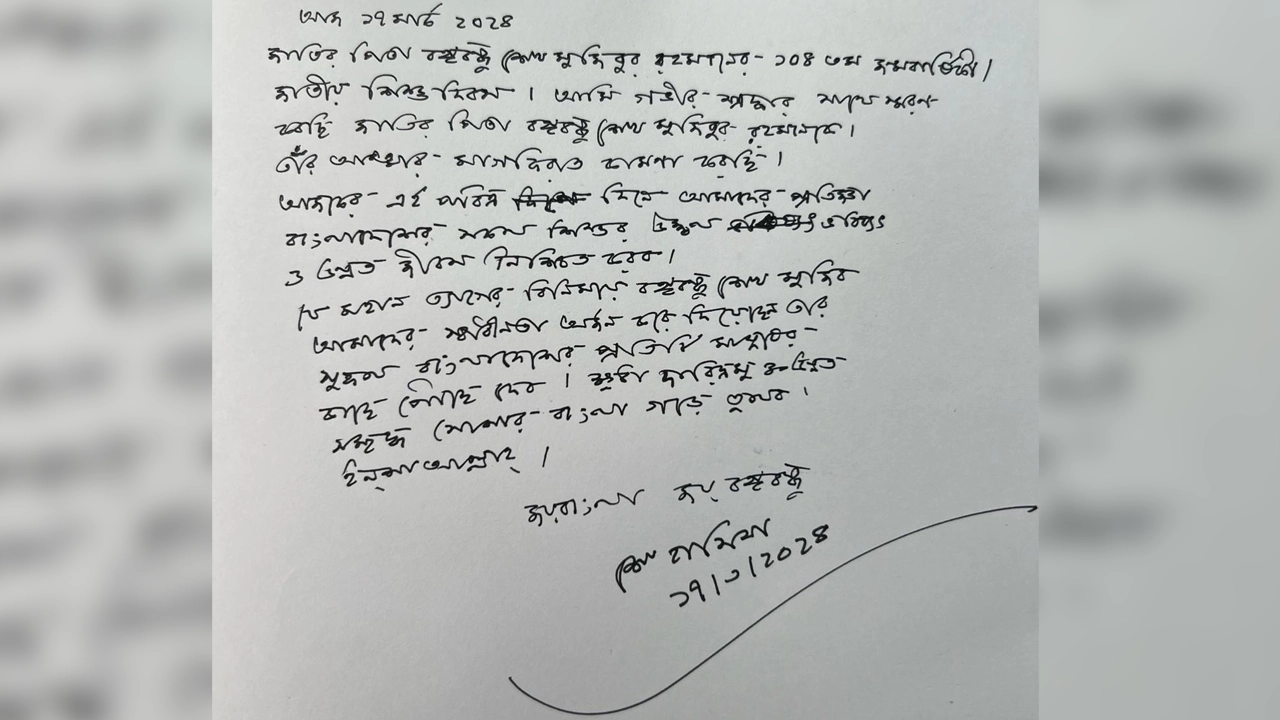 আজ ১৭ মার্চ ২০২৪
জাতির পিতা বঙ্গবন্ধু শেখ মুজিবুর রহমানের ১০৪ তম জন্মবার্ষিকী।
জাতীয় শিশু দিবস। আমি গভীর শ্রদ্ধার সাথে স্মরণ
করছি জাতির পিতা বঙ্গবন্ধু শেখ মুজিবুর রহমানকে।
তাঁর আত্মার মাগফিরাত কামনা করছি।
আজকের এই পবিত্র দিনে আমাদের প্রতিজ্ঞা
বাংলাদেশের সকল শিশুর উজ্জ্বল ভবিষ্যৎ
ও উন্নত জীবন নিশ্চিত করব।
যে মহান ত্যাগের বিনিময়ে বঙ্গবন্ধু শেখ মুজিব
আমাদের স্বাধীনতা অর্জন করে দিয়েছেন তার
সুফল বাংলাদেশের প্রতিটি মানুষের
কাছে পৌঁছে দেব। ক্ষুধা দারিদ্র্যমুক্ত উন্নত
সমৃদ্ধ সোনার বাংলা গড়ে তুলব।
ইনশাআল্লাহ্।
জয়বাংলা জয় বঙ্গবন্ধু
শেখ হাসিনা
১৭/৩/২০২৪